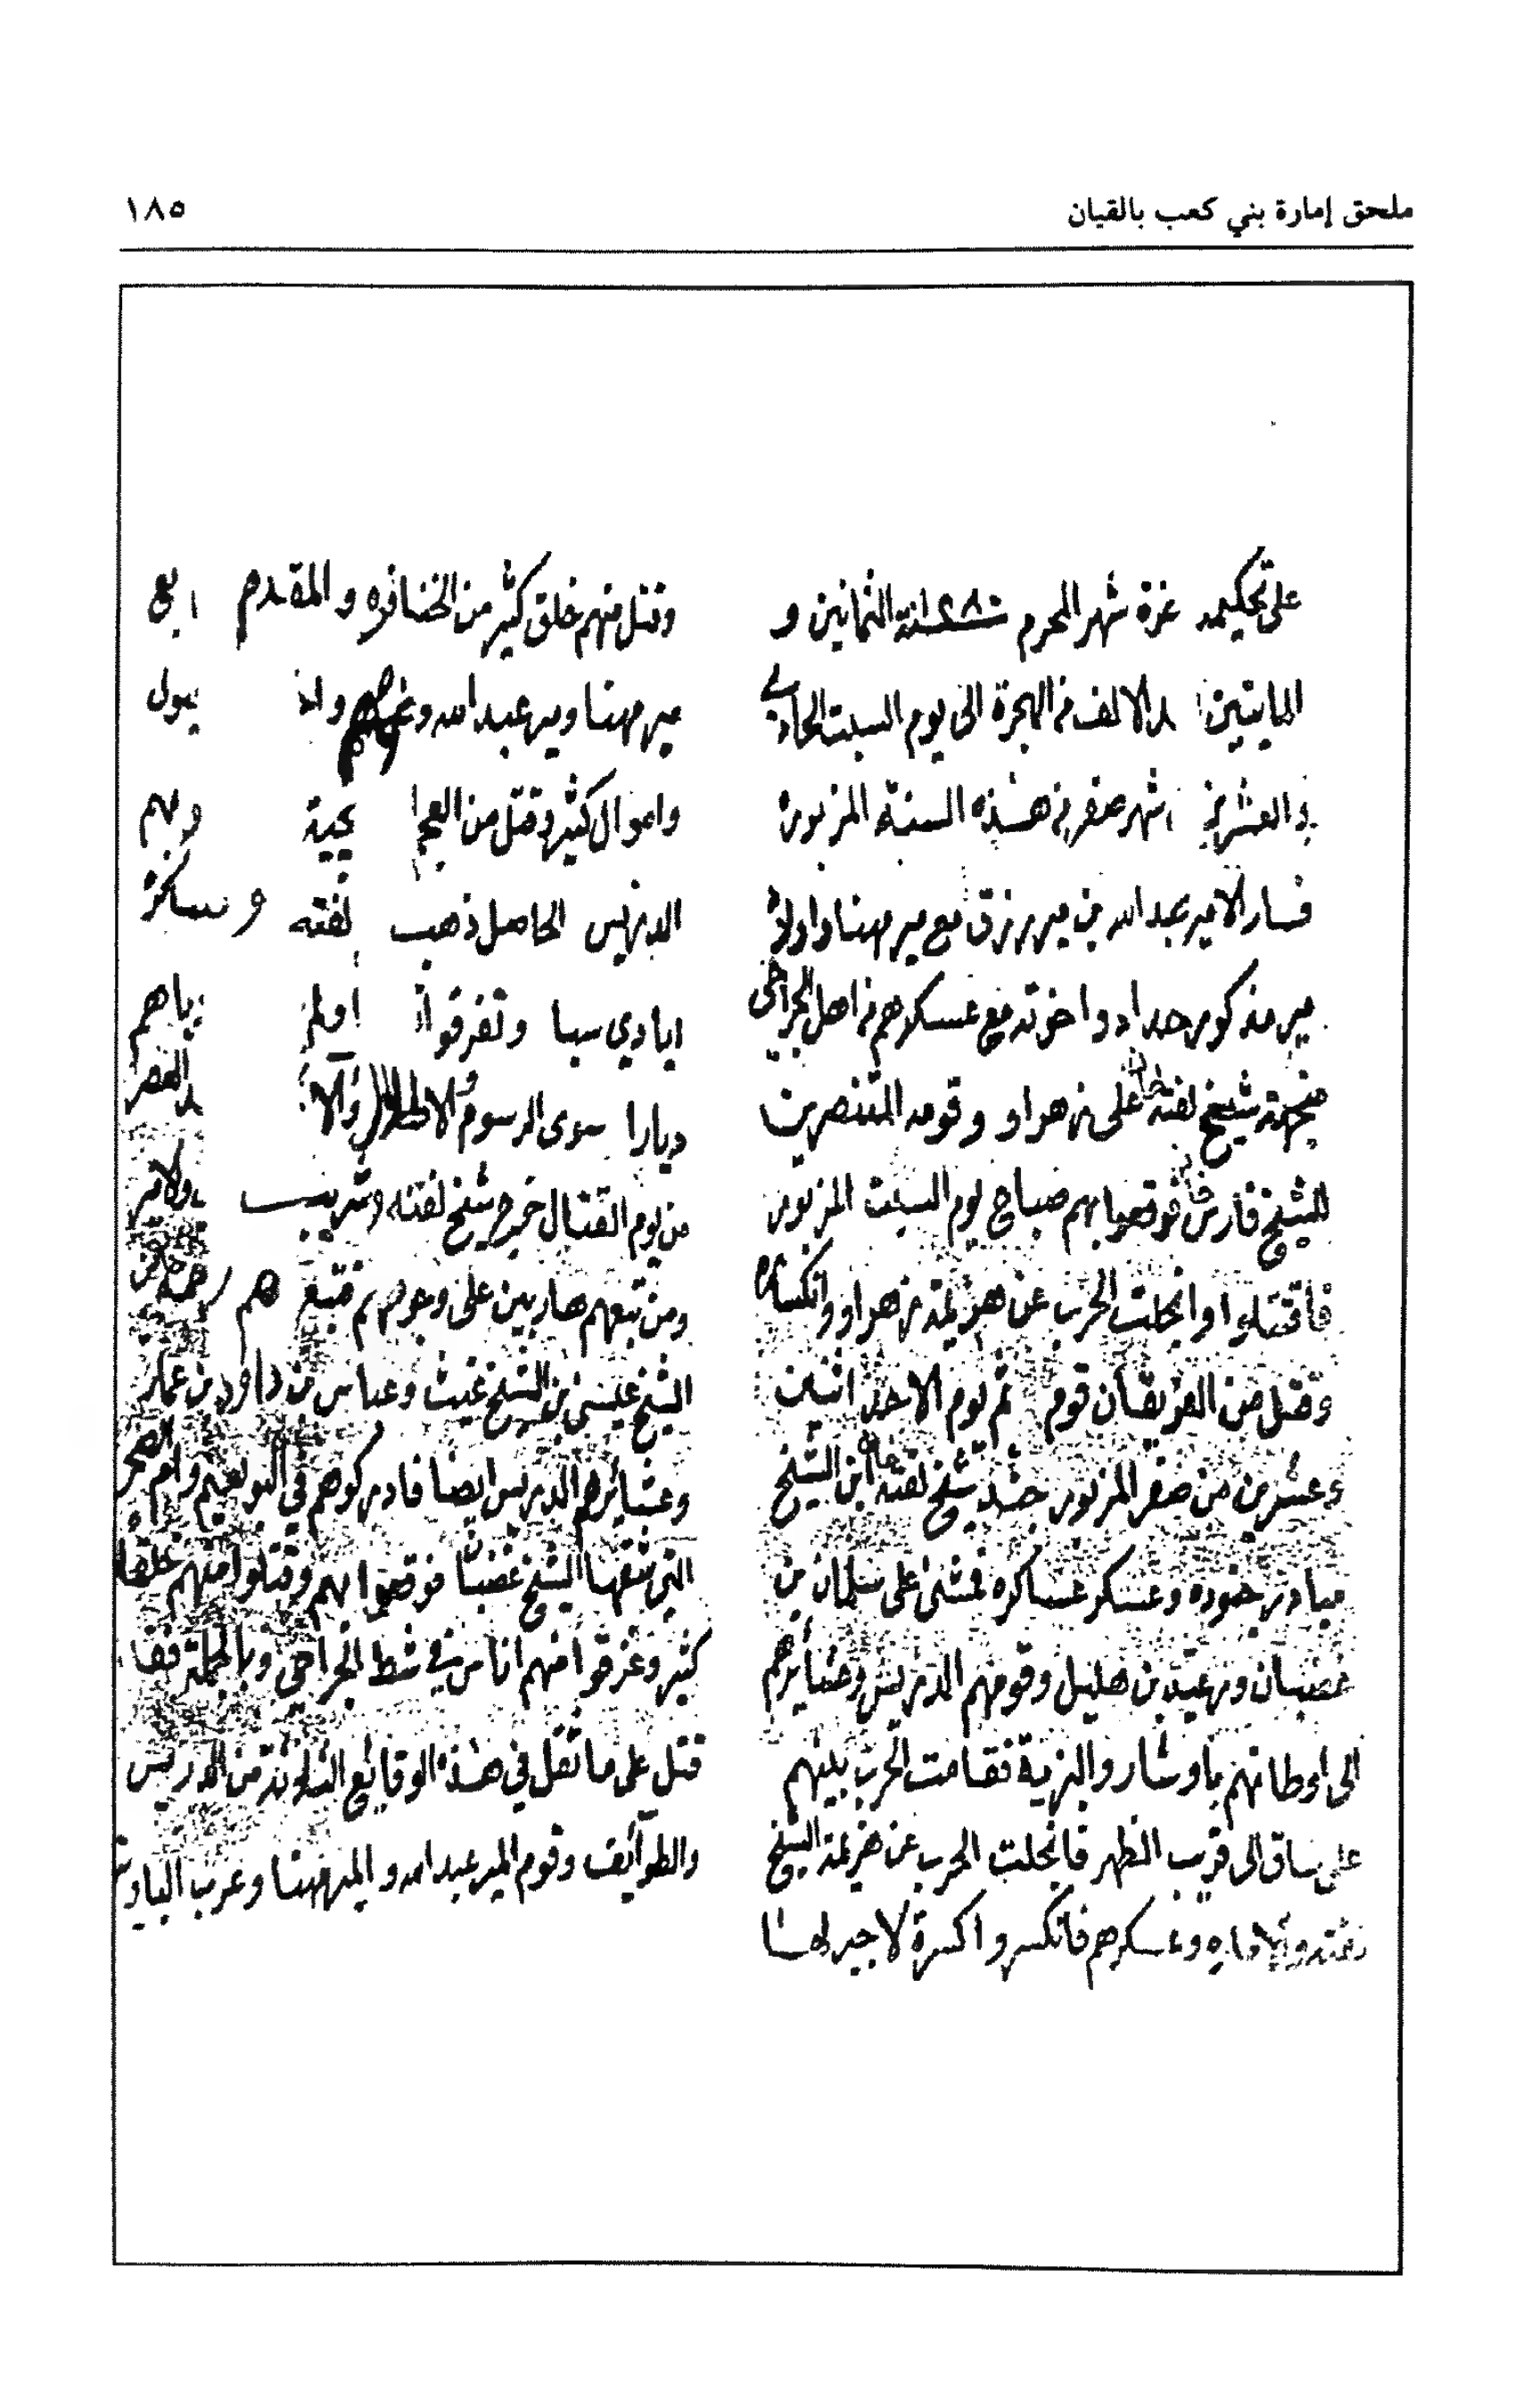 ملحق إمارة بني كعب بالقيان
١٨٥
على تحكيمه غرة شهر المحرم سنة ١٢٨٠ الثمانين و
المايتين الالف من الهجرة الى يوم السبت الحادي
والعشرين شهر صفر من هذه السنة المزبورة
فسار الامير عبد الله بن مير رزق مع مير مهنا واولاد
مير مذكور حداد واخوته مع عسكرهم من اهل الجراحي
شيخ لفته خان على زهراو وقومه المنتصرين
للشيخ فارس خان فوقعوا بهم صباح يوم السبت المزبور
فاقتتلوا وانجلت الحرب عن هزيمة زهراو وانكساره
وقتل من الفريقان قوم ثم يوم الاحد اثنين
وعشرين من صفر المزبور حشد شيخ لفته خان ابن الشيخ
مبادر جنوده وعسكر عساكره فمشى على سلمان بن
غضبان ورعيد بن هليل وقومهم الدريس وعشايرهم
الى اوطانهم باوشار والبزية فقامت الحرب بينهم
على ساق الى قريب الظهر فانجلت الحرب عن هزيمة الشيخ
لفته وعسكرهم فانكسروا كسرة لا جبر لها
وقتل منهم خلق كثير من الخنافره والمقدم
مير مهنا ومير عبد الله
واموال كثيره وقتل من
الدريس الحاصل ذهب لفته
ايادي سبا وتفرقوا
ديارا سوى الرسوم
من يوم القتال خرج شيخ لفته
ومن تبعهم هاربين على وجوههم فتبعهم رحمه
الشيخ عيسى بن الشيخ غيث وعباس بن داود بن عمار
وعشايرهم الدريس ايضا فادركوهم في البو نعيم وام الصخر
التي شقها الشيخ غضبان فوقعوا بهم وقتلوا منهم خلقا
كثير وغرقوا منهم اناس في شط الجراحي وبالجملة فقد
قتل على ما نقل في هذه الوقايع الثلاثة من الدريس
والطوايف وقوم المير عبد الله والمير مهنا وعرب